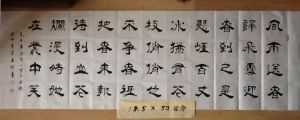 風雨送春
歸飛雪迎
春到已是
懸崖百丈
冰猶有花
枝俏俏也
不爭春只
把春來報
待到山花
爛漫時她
在叢中笑
1米5×50公分